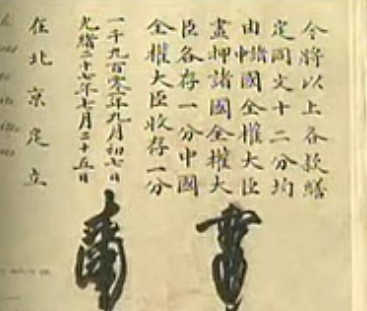 今將以上各款繕
定同文十二分均
由諸中國全權大臣
畫押諸國全權大
臣各存一分中國
全權大臣收存一分
一千九百零一年九月初七日
光緒二十七年七月二十五日
在北京定立